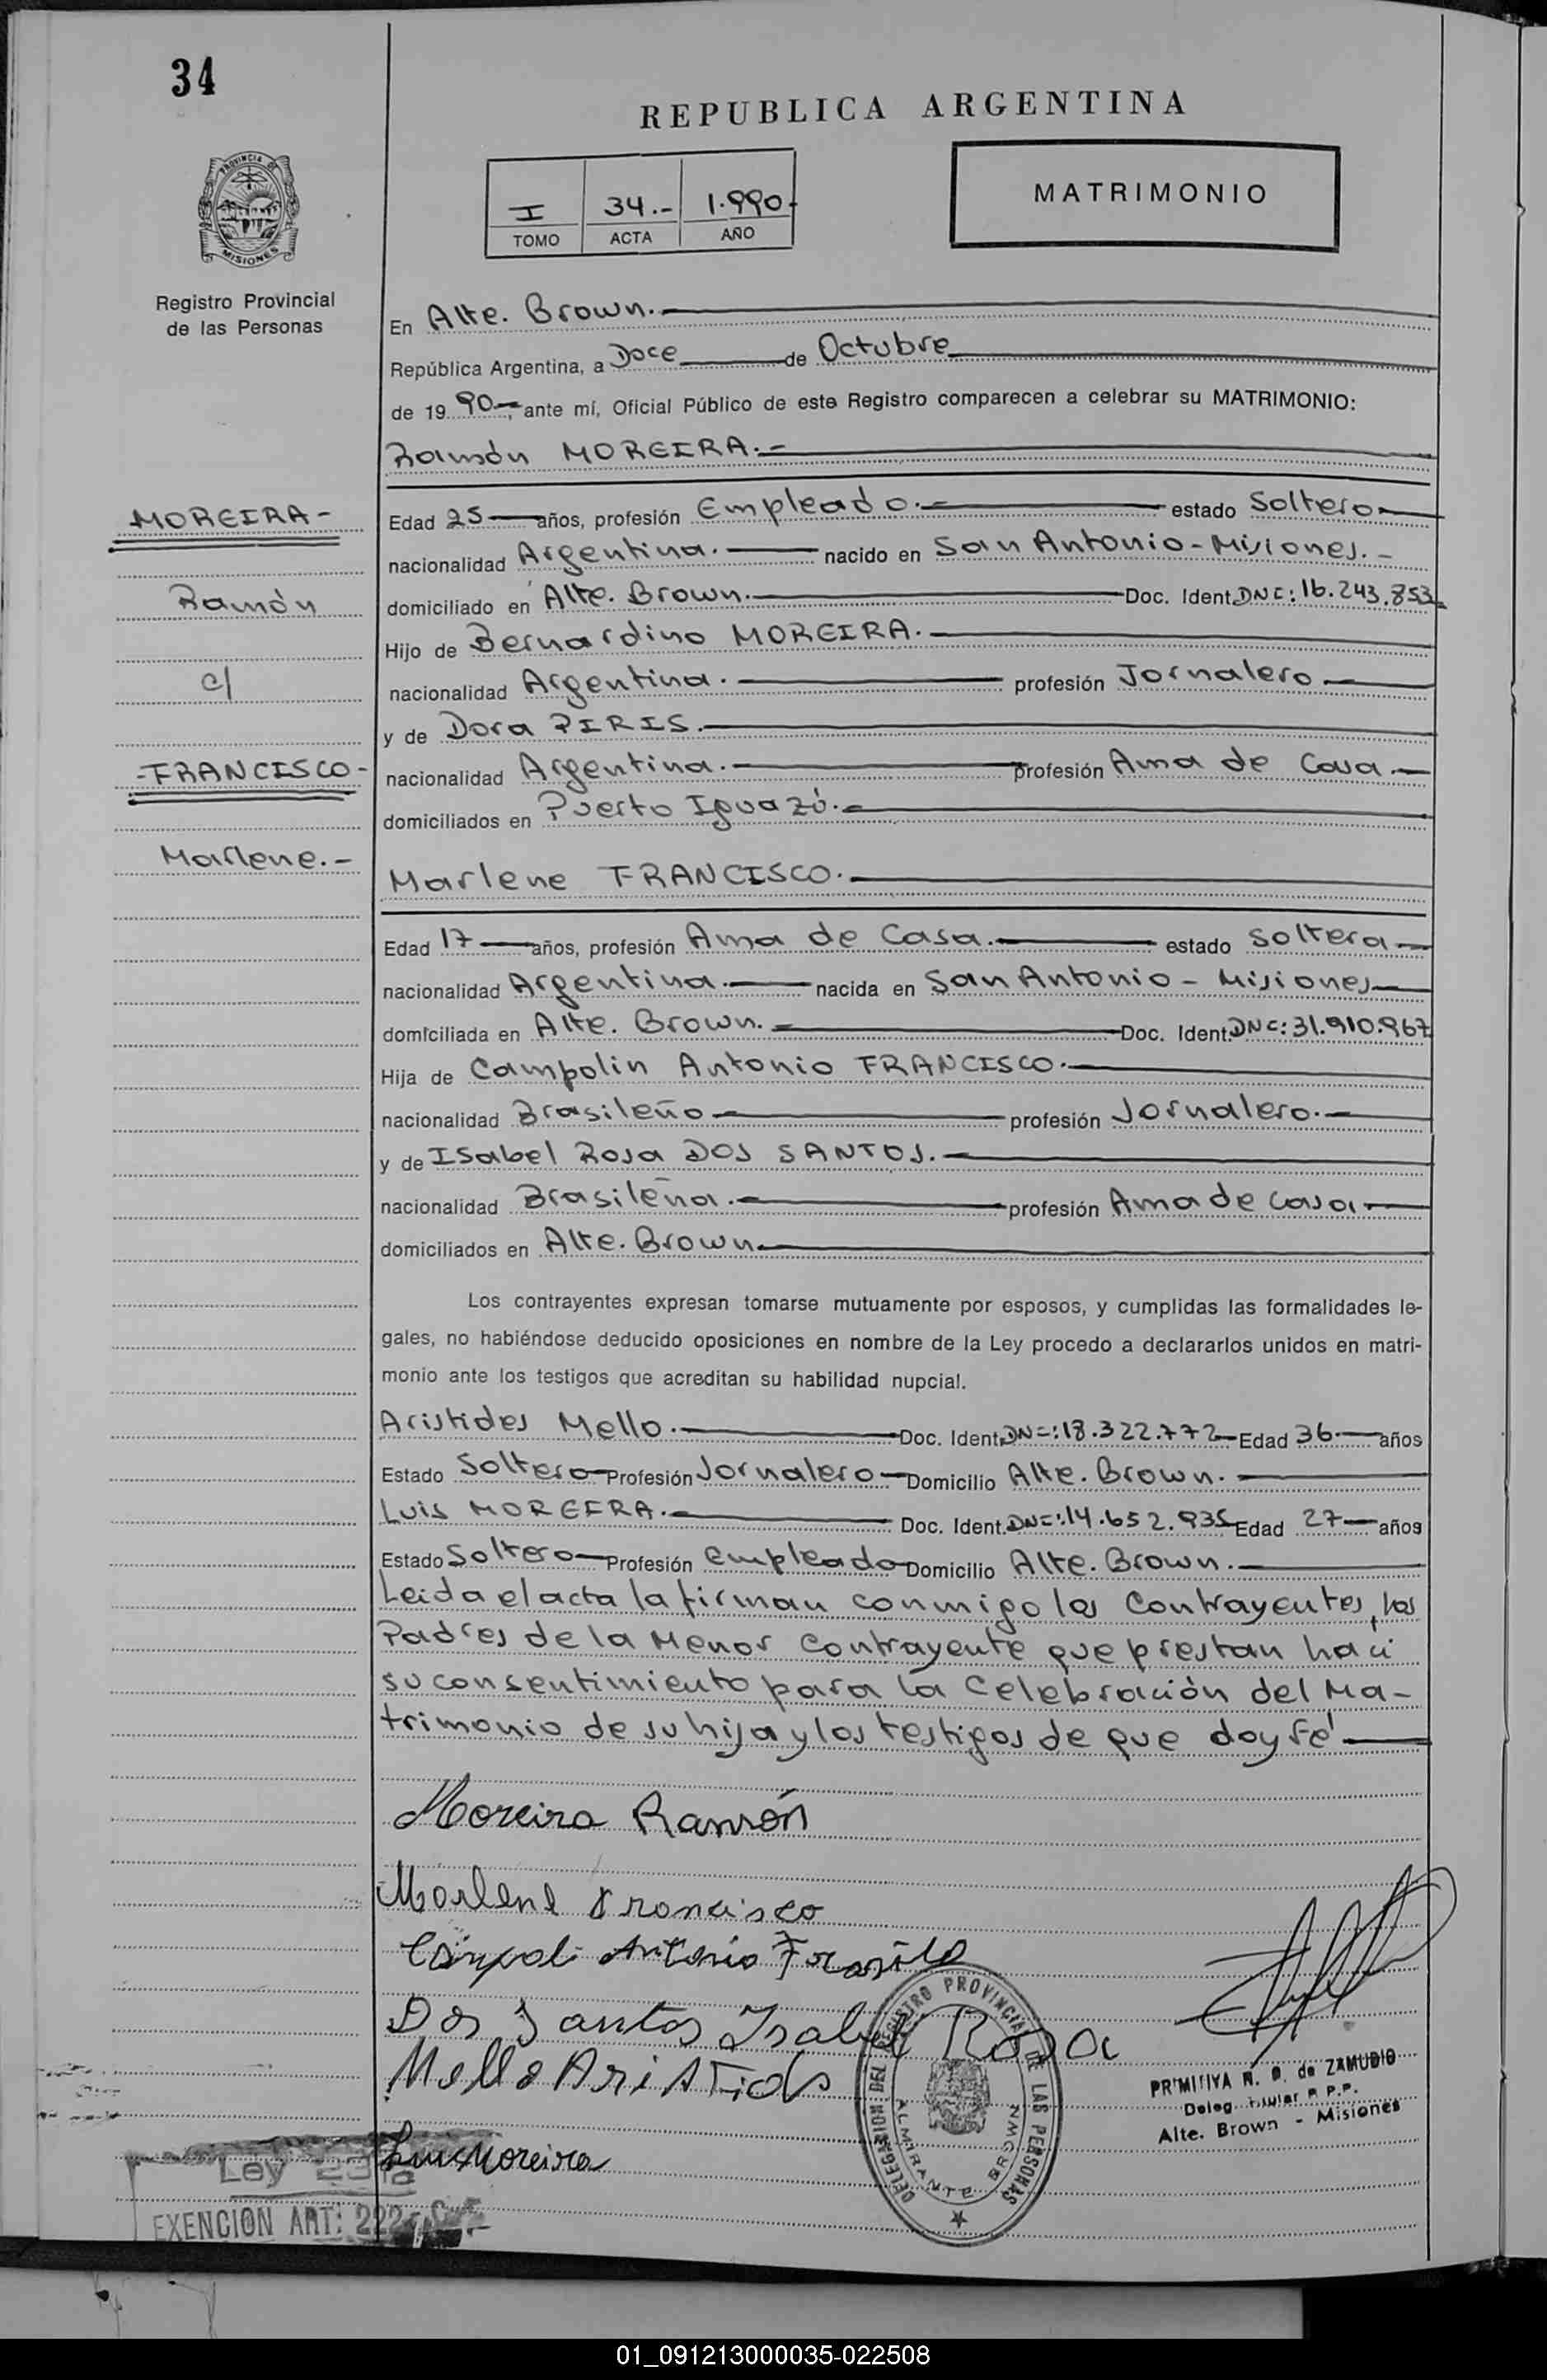 34
REPUBLICA ARGENTINA
PROVINCIA DE
MISIONES
I 34.- 1.990-
TOMO ACTA AÑO
MATRIMONIO
Registro Provincial
de las Personas
En Alte. Brown.
República Argentina, a Doce de Octubre
de 19 90 ante mí, Oficial Público de este Registro comparecen a celebrar su MATRIMONIO:
Ramón MOREIRA.-
MOREIRA-
Ramón
c/
-FRANCISCO-
Marlene.-
Edad 25 años, profesión Empleado.- estado Soltero
nacionalidad Argentina. nacido en San Antonio - Misiones.-
domiciliado en Alte. Brown. Doc. Ident. DNI: 16.243.853
Hijo de Bernardino MOREIRA.
nacionalidad Argentina. profesión Jornalero
y de Dora PIRIS.
nacionalidad Argentina. profesión Ama de Casa.
domiciliados en Puerto Iguazú.
Marlene FRANCISCO.
Edad 17 años, profesión Ama de Casa. estado Soltera
nacionalidad Argentina. nacida en San Antonio - Misiones
domiciliada en Alte. Brown. Doc. Ident. DNI: 31.910.967
Hija de Campolin Antonio FRANCISCO.
nacionalidad Brasileño profesión Jornalero.
y de Isabel Rosa DOS SANTOS.
nacionalidad Brasileña. profesión Ama de Casa
domiciliados en Alte. Brown
Los contrayentes expresan tomarse mutuamente por esposos, y cumplidas las formalidades le-
gales, no habiéndose deducido oposiciones en nombre de la Ley procedo a declararlos unidos en matri-
monio ante los testigos que acreditan su habilidad nupcial.
Aristides Mello. Doc. Ident. DNI: 18.322.772 Edad 36 años
Estado Soltero Profesión Jornalero Domicilio Alte. Brown.
Luis MOREIRA. Doc. Ident. DNI: 14.652.935 Edad 27 años
Estado Soltero Profesión empleado Domicilio Alte. Brown.
Leida el acta la firman conmigo los Contrayentes, los
Padres de la Menor Contrayente que prestan haci
su consentimiento para la Celebración del Ma-
trimonio de su hija y los testigos de que doy Fé
Moreira Ramón
Marlene Francisco
Antonio
Dos Santos Isabel Rosa
Mello
Luis Moreira
DELEGACION DEL REGISTRO PROVINCIAL DE LAS PERSONAS
ALMIRANTE BROWN
PRIMITIVA N. D. de ZAMUDIO
Deleg. Titular R.P.P.
Alte. Brown - Misiones
Ley
EXENCION ART: 222
01_091213000035-022508